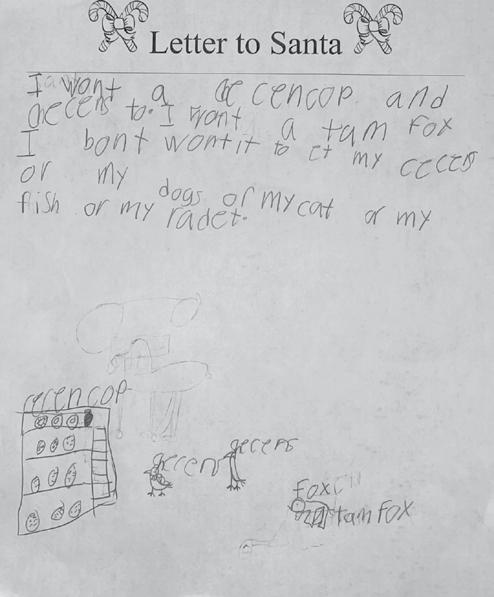 Letter to Santa
I wont a gecencop and
gecens to. I wont a tam fox
I bont wont it to et my cecens
or my dogs or my cat or my
fish or my radet.
cecencop
gecens gecens
fox
tam fox